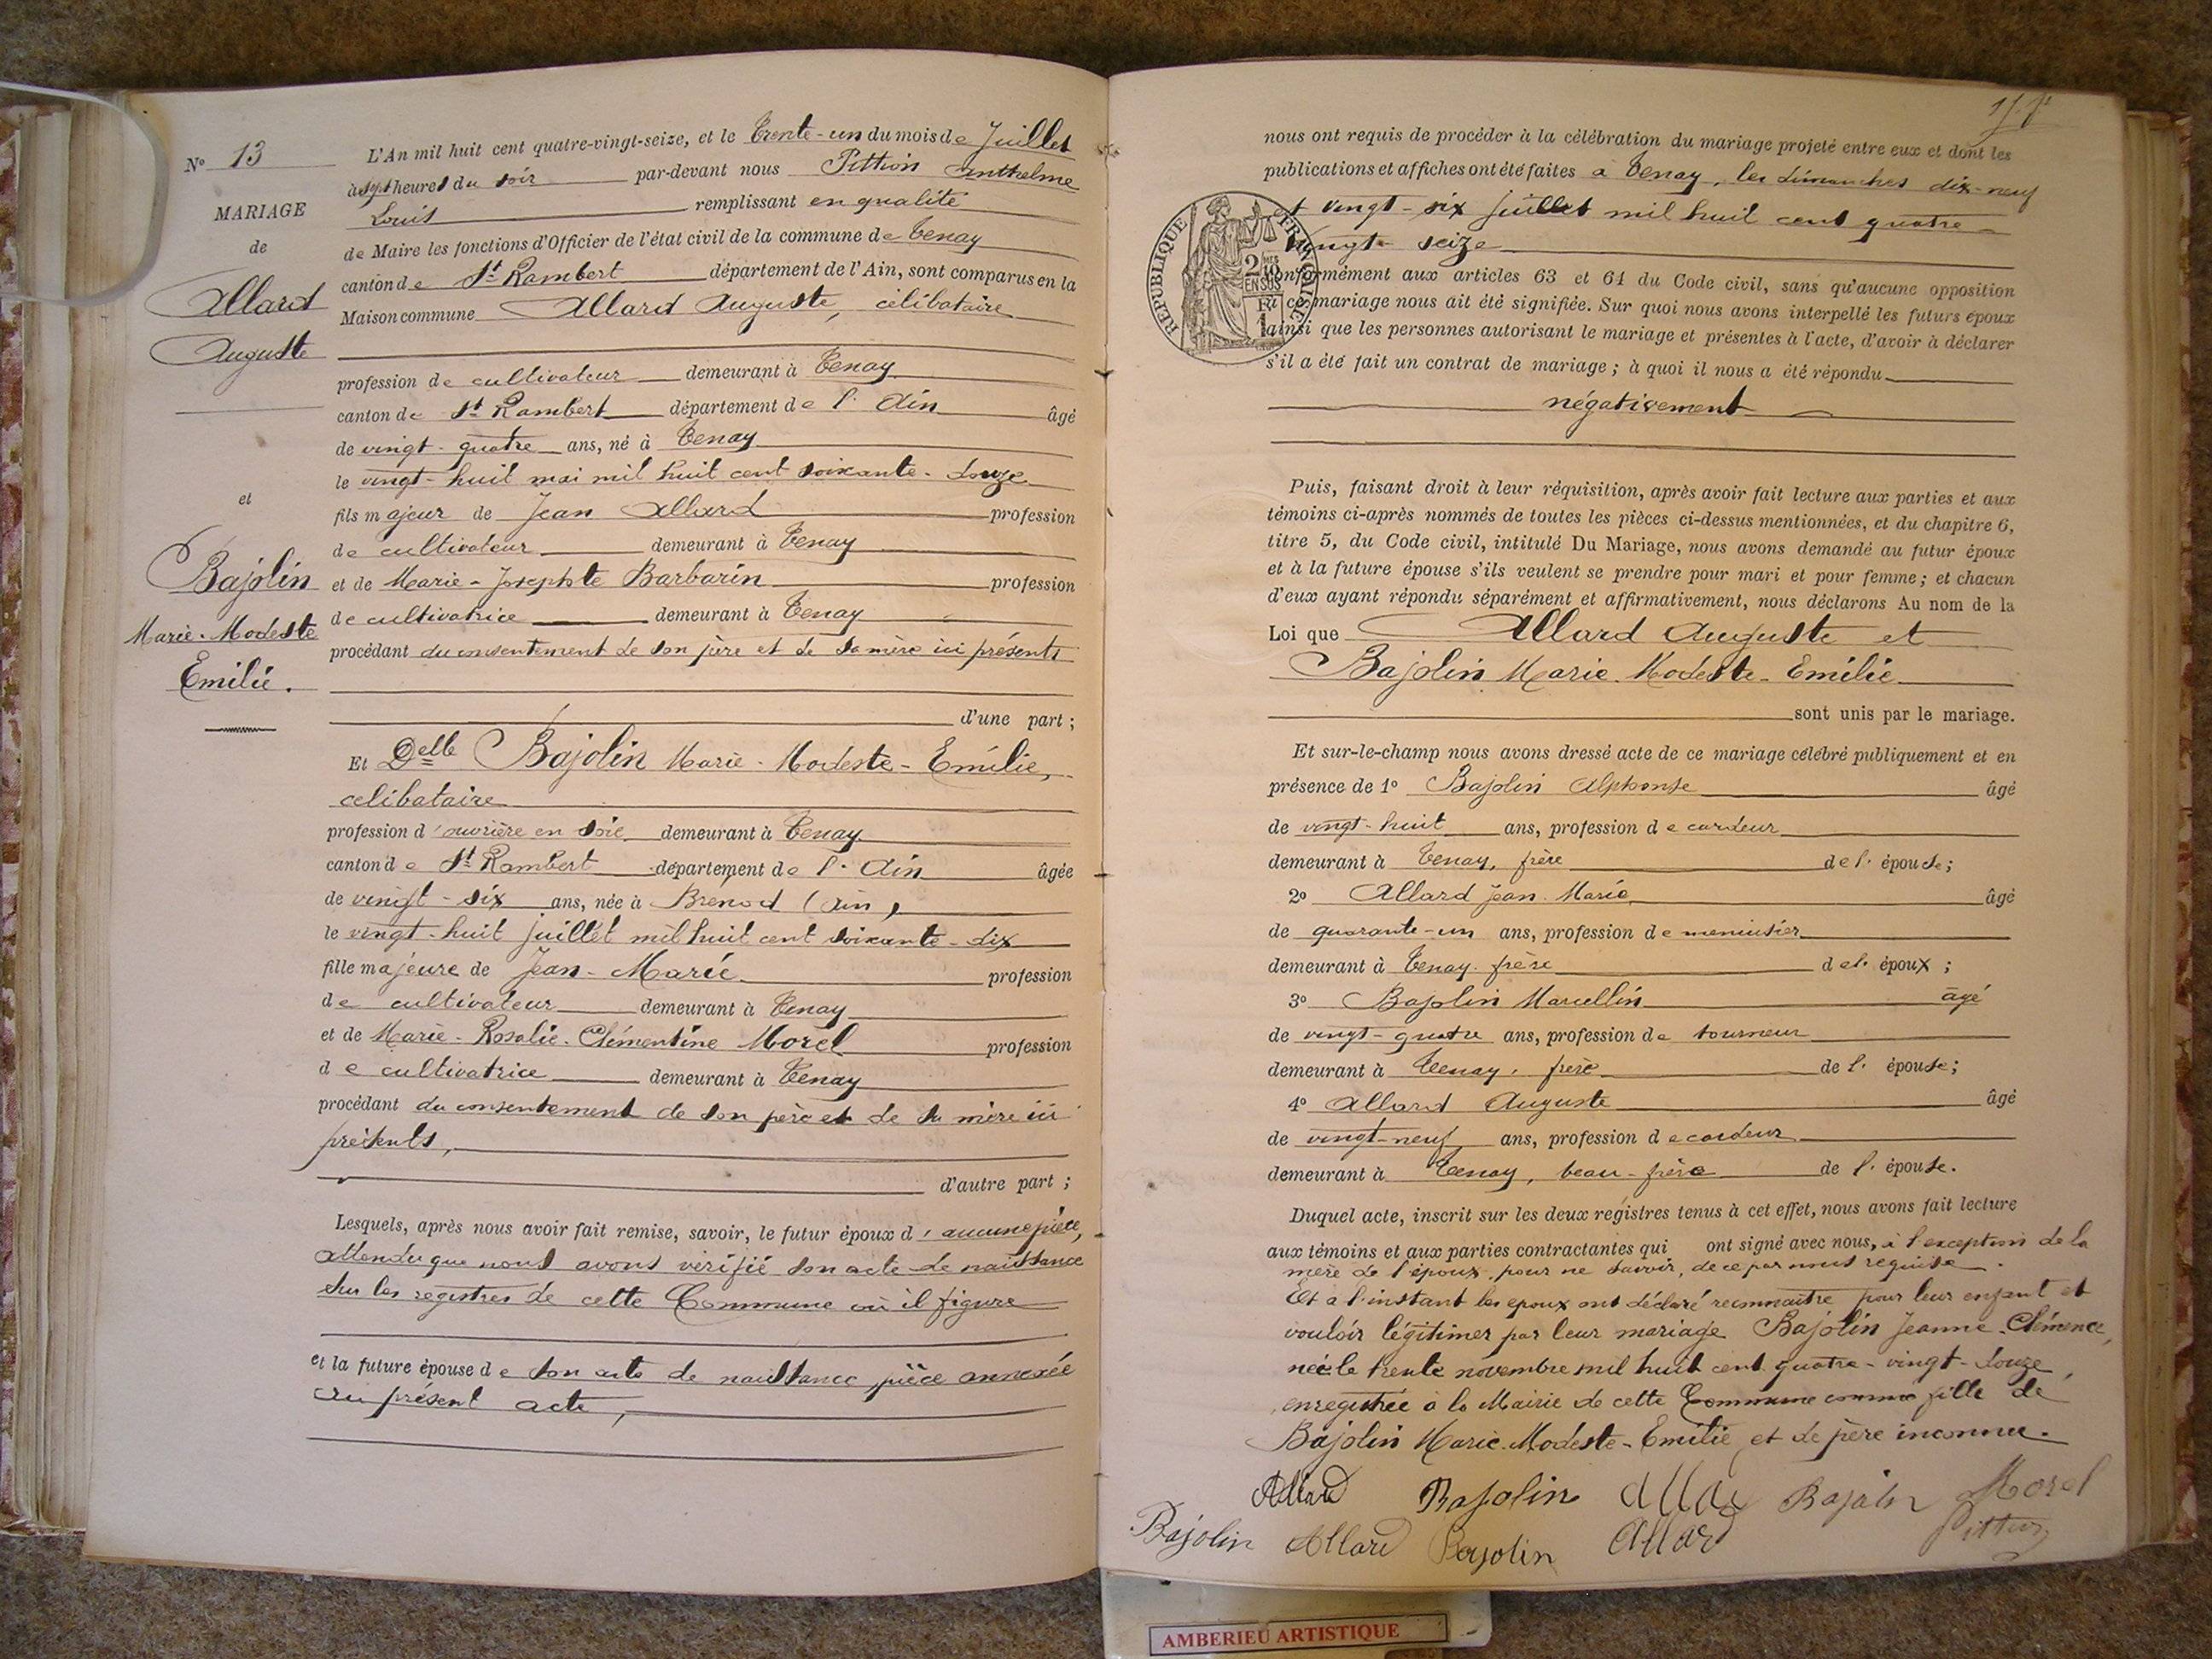 N° 13
MARIAGE
de
Allard
Auguste
et
Bajolin
Marie-Modeste
Emilie.
L'An mil huit cent quatre-vingt-seize, et le Trente-un du mois de Juillet
à sept heures du soir par-devant nous Pittion Anthelme
Louis remplissant en qualité
de Maire les fonctions d'Officier de l'état civil de la commune de Tenay
canton de St Rambert département de l'Ain, sont comparus en la
Maison commune Allard Auguste, célibataire
profession de cultivateur demeurant à Tenay
canton de St Rambert département de l'Ain âgé
de vingt-quatre ans, né à Tenay
le vingt-huit mai mil huit cent soixante-douze
fils majeur de Jean Allard profession
de cultivateur demeurant à Tenay
et de Marie-Josephte Barbarin profession
de cultivatrice demeurant à Tenay
procédant du consentement de son père et de sa mère ici présents
d'une part ;
Et Delle Bajolin Marie-Modeste-Emilie,
celibataire
profession d'ouvrière en soie demeurant à Tenay
canton de St Rambert département de l'Ain âgée
de vingt-six ans, née à Brenod (Ain),
le vingt-huit juillet mil huit cent soixante-dix
fille majeure de Jean-Marie profession
de cultivateur demeurant à Tenay
et de Marie-Rosalie-Clémentine Morel profession
de cultivatrice demeurant à Tenay
procédant du consentement de son père et de sa mère ici
présents,
d'autre part ;
Lesquels, après nous avoir fait remise, savoir, le futur époux d'aucune pièce,
attendu que nous avons vérifié son acte de naissance
sur les registres de cette Commune où il figure
et la future épouse de son acte de naissance, pièce annexée
au présent acte,
nous ont requis de procéder à la célébration du mariage projeté entre eux et dont les
publications et affiches ont été faites à Tenay, les dimanches dix-neuf
et vingt-six juillet mil huit cent quatre-
vingt-seize
REPUBLIQUE FRANÇAISE
2/10 EN SUS
conformément aux articles 63 et 64 du Code civil, sans qu'aucune opposition
à ce mariage nous ait été signifiée. Sur quoi nous avons interpellé les futurs époux
ainsi que les personnes autorisant le mariage et présentes à l'acte, d'avoir à déclarer
s'il a été fait un contrat de mariage ; à quoi il nous a été répondu
négativement
Puis, faisant droit à leur réquisition, après avoir fait lecture aux parties et aux
témoins ci-après nommés de toutes les pièces ci-dessus mentionnées, et du chapitre 6,
titre 5, du Code civil, intitulé Du Mariage, nous avons demandé au futur époux
et à la future épouse s'ils veulent se prendre pour mari et pour femme ; et chacun
d'eux ayant répondu séparément et affirmativement, nous déclarons Au nom de la
Loi que Allard Auguste et
Bajolin Marie-Modeste-Emilie
sont unis par le mariage.
Et sur-le-champ nous avons dressé acte de ce mariage célébré publiquement et en
présence de 1° Bajolin Alphonse âgé
de vingt-huit ans, profession de cardeur
demeurant à Tenay, frère de l'épouse ;
2° Allard Jean-Marie âgé
de quarante-un ans, profession de menuisier
demeurant à Tenay, frère de l'époux ;
3° Bajolin Marcellin âgé
de vingt-quatre ans, profession de tourneur
demeurant à Tenay, frère de l'épouse ;
4° Allard Auguste âgé
de vingt-neuf ans, profession de cardeur
demeurant à Tenay, beau-frère de l'épouse.
Duquel acte, inscrit sur les deux régistres tenus à cet effet, nous avons fait lecture
aux témoins et aux parties contractantes qui ont signé avec nous, à l'exception de la
mère de l'époux, pour ne savoir, de ce par nous requise.
Et à l'instant les epoux ont déclaré reconnaître pour leur enfant et
vouloir légitimer par leur mariage Bajolin Jeanne-Clémence,
née le trente novembre mil huit cent quatre-vingt-douze,
enregistrée à la Mairie de cette Commune comme fille de
Bajolin Marie-Modeste-Emilie et de père inconnu.
Allard Bajolin Allard Bajolin Morel
Bajolin Allard Bajolin Allard Pittion
AMBERIEU ARTISTIQUE